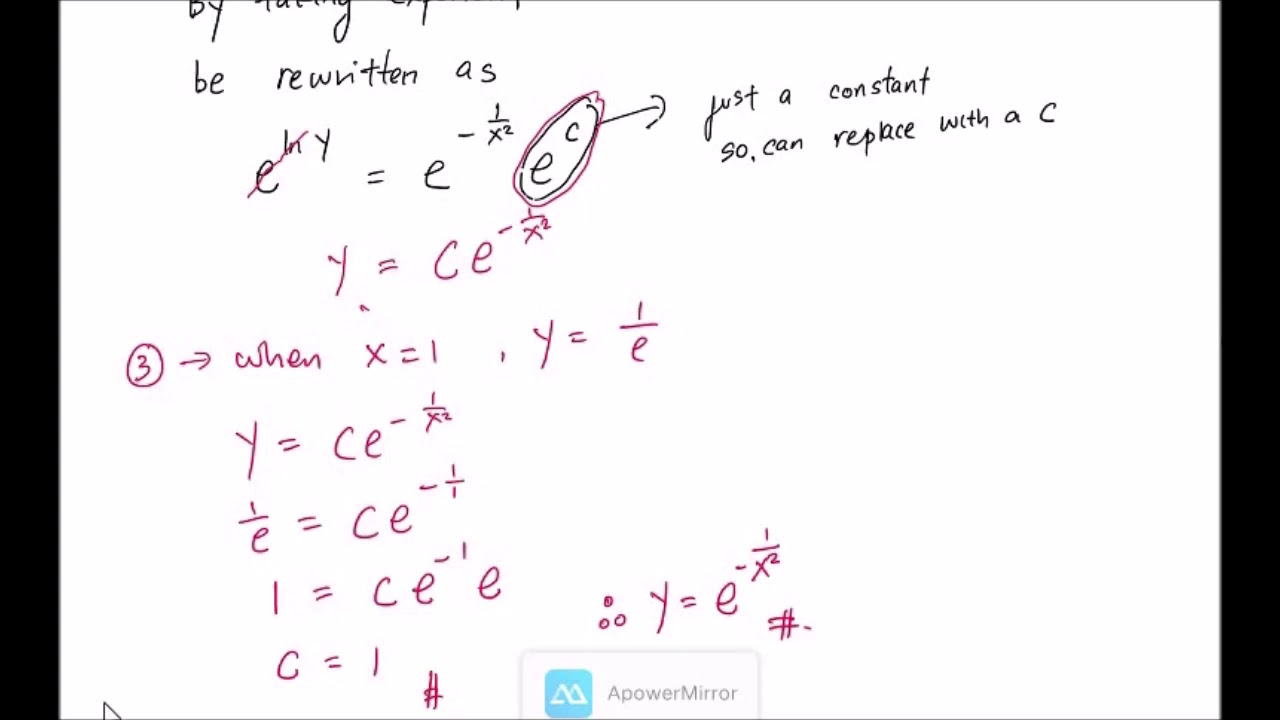 By taking
be rewritten as
e^{ln y} = e^{-1/x²} e^c → just a constant
so, can replace with a C
y = Ce^{-1/x²}
③ → when x = 1 , y = 1/e
y = Ce^{-1/x²}
1/e = Ce^{-1/1}
1 = Ce^{-1} e
∴ y = e^{-1/x²} #.
C = 1 #
ApowerMirror